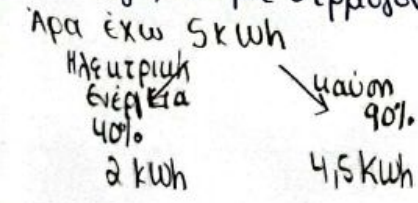 Άρα έχω 5 kwh
Ηλεκτρική
ενέργεια
40%
2 kwh
καύση
90%
4,5 kwh